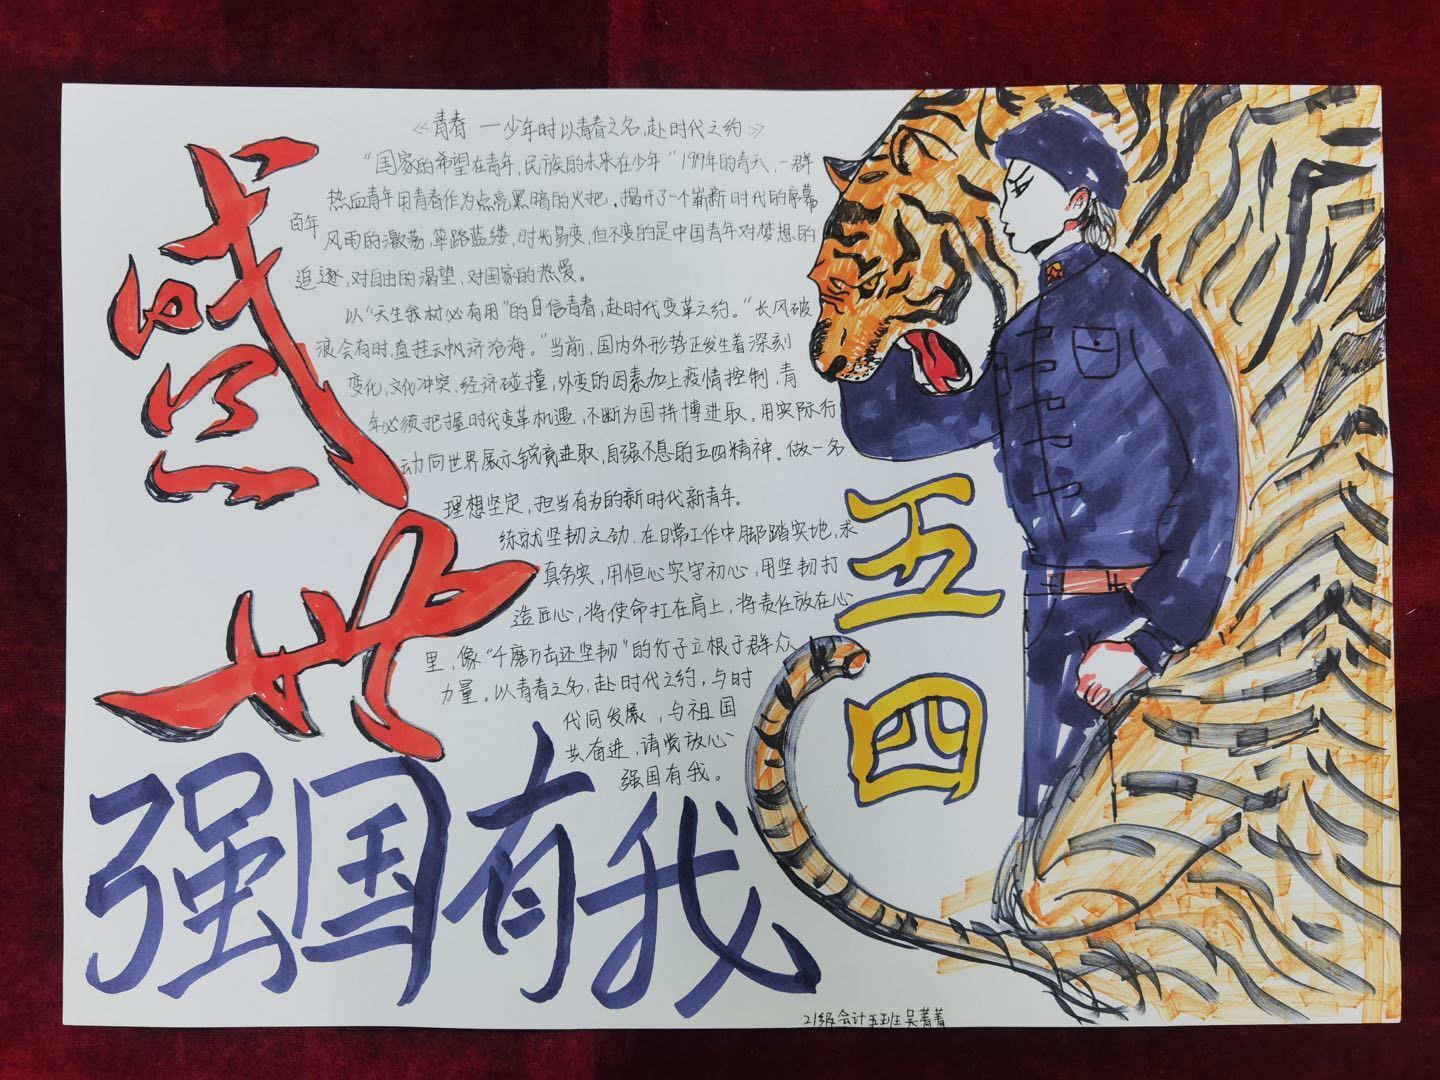 盛世
《青春 — 少年时以青春之名,赴时代之约》
"国家的希望在青年,民族的未来在少年"1919年的青天,一群
热血青年用青春作为点亮黑暗的火把,揭开了一个崭新时代的序幕
百年风雨的激荡,筚路蓝缕,时光易变,但不变的是中国青年对梦想的
追逐,对自由的渴望,对国家的热爱。
以"天生我材必有用"的自信青春,赴时代变革之约。"长风破
浪会有时,直挂云帆济沧海。"当前,国内外形势正发生着深刻
变化,文化冲突、经济碰撞,外变的因素加上疫情控制,青
年必须把握时代变革机遇,不断为国拼搏进取。用实际行
动向世界展示锐意进取,自强不息的五四精神。做一名
理想坚定,担当有为的新时代新青年。
练就坚韧之劲,在日常工作中脚踏实地,求
真务实,用恒心实守初心,用坚韧打
造匠心,将使命扛在肩上,将责任放在心
里,像"千磨万击还坚韧"的竹子立根于群众
力量。以青春之名,赴时代之约,与时
代同发展,与祖国
共奋进,请党放心
强国有我。
五四
强国有我
21级会计五班吴菁菁